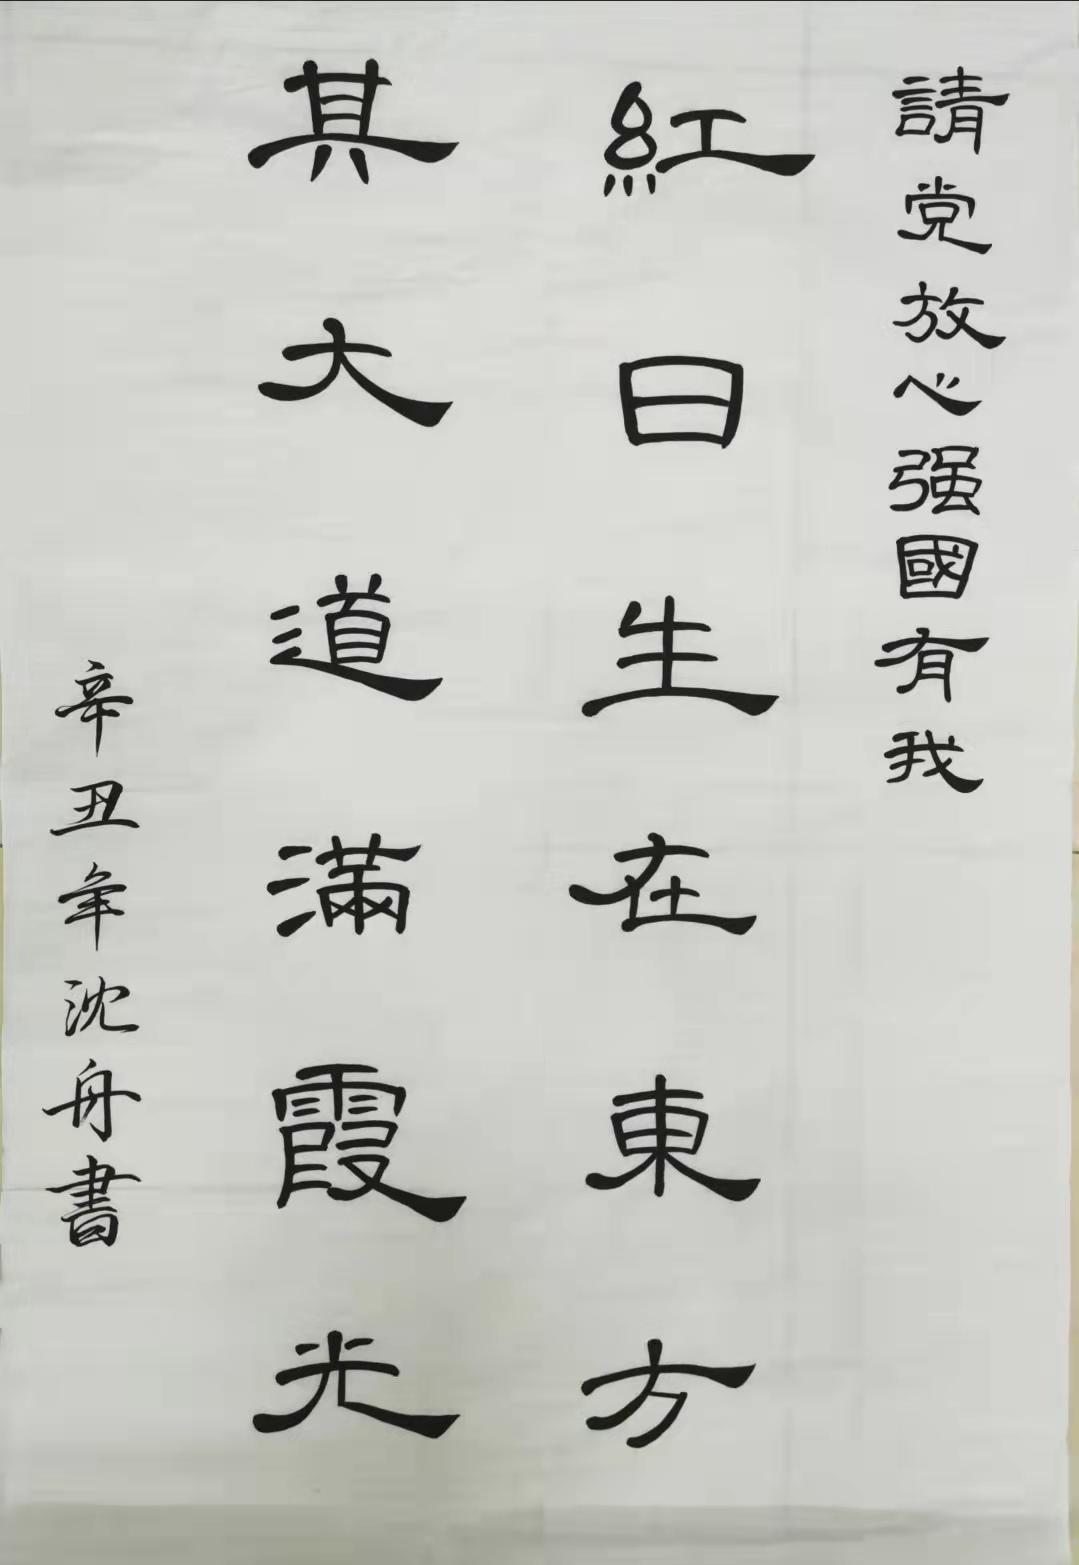 請党放心强國有我
紅日生在東方
其大道滿霞光
辛丑年沈舟書